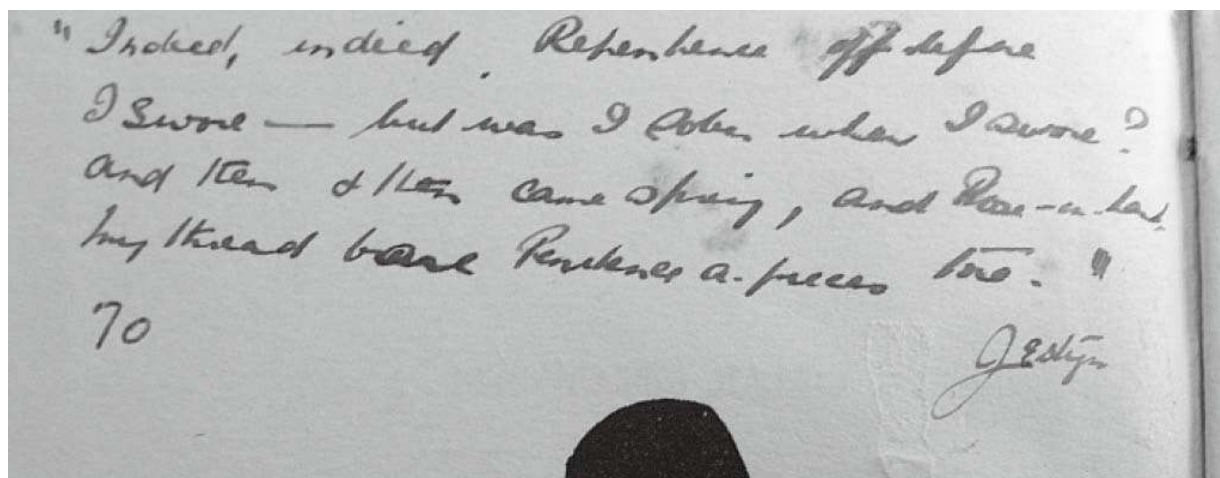 "Indeed, indeed, Repentence oft before
I swore — but was I sober when I swore?
and then & then came spring, and Rose-in-hand
my thread bare Penitence a-pieces tore."
70
JEstyn